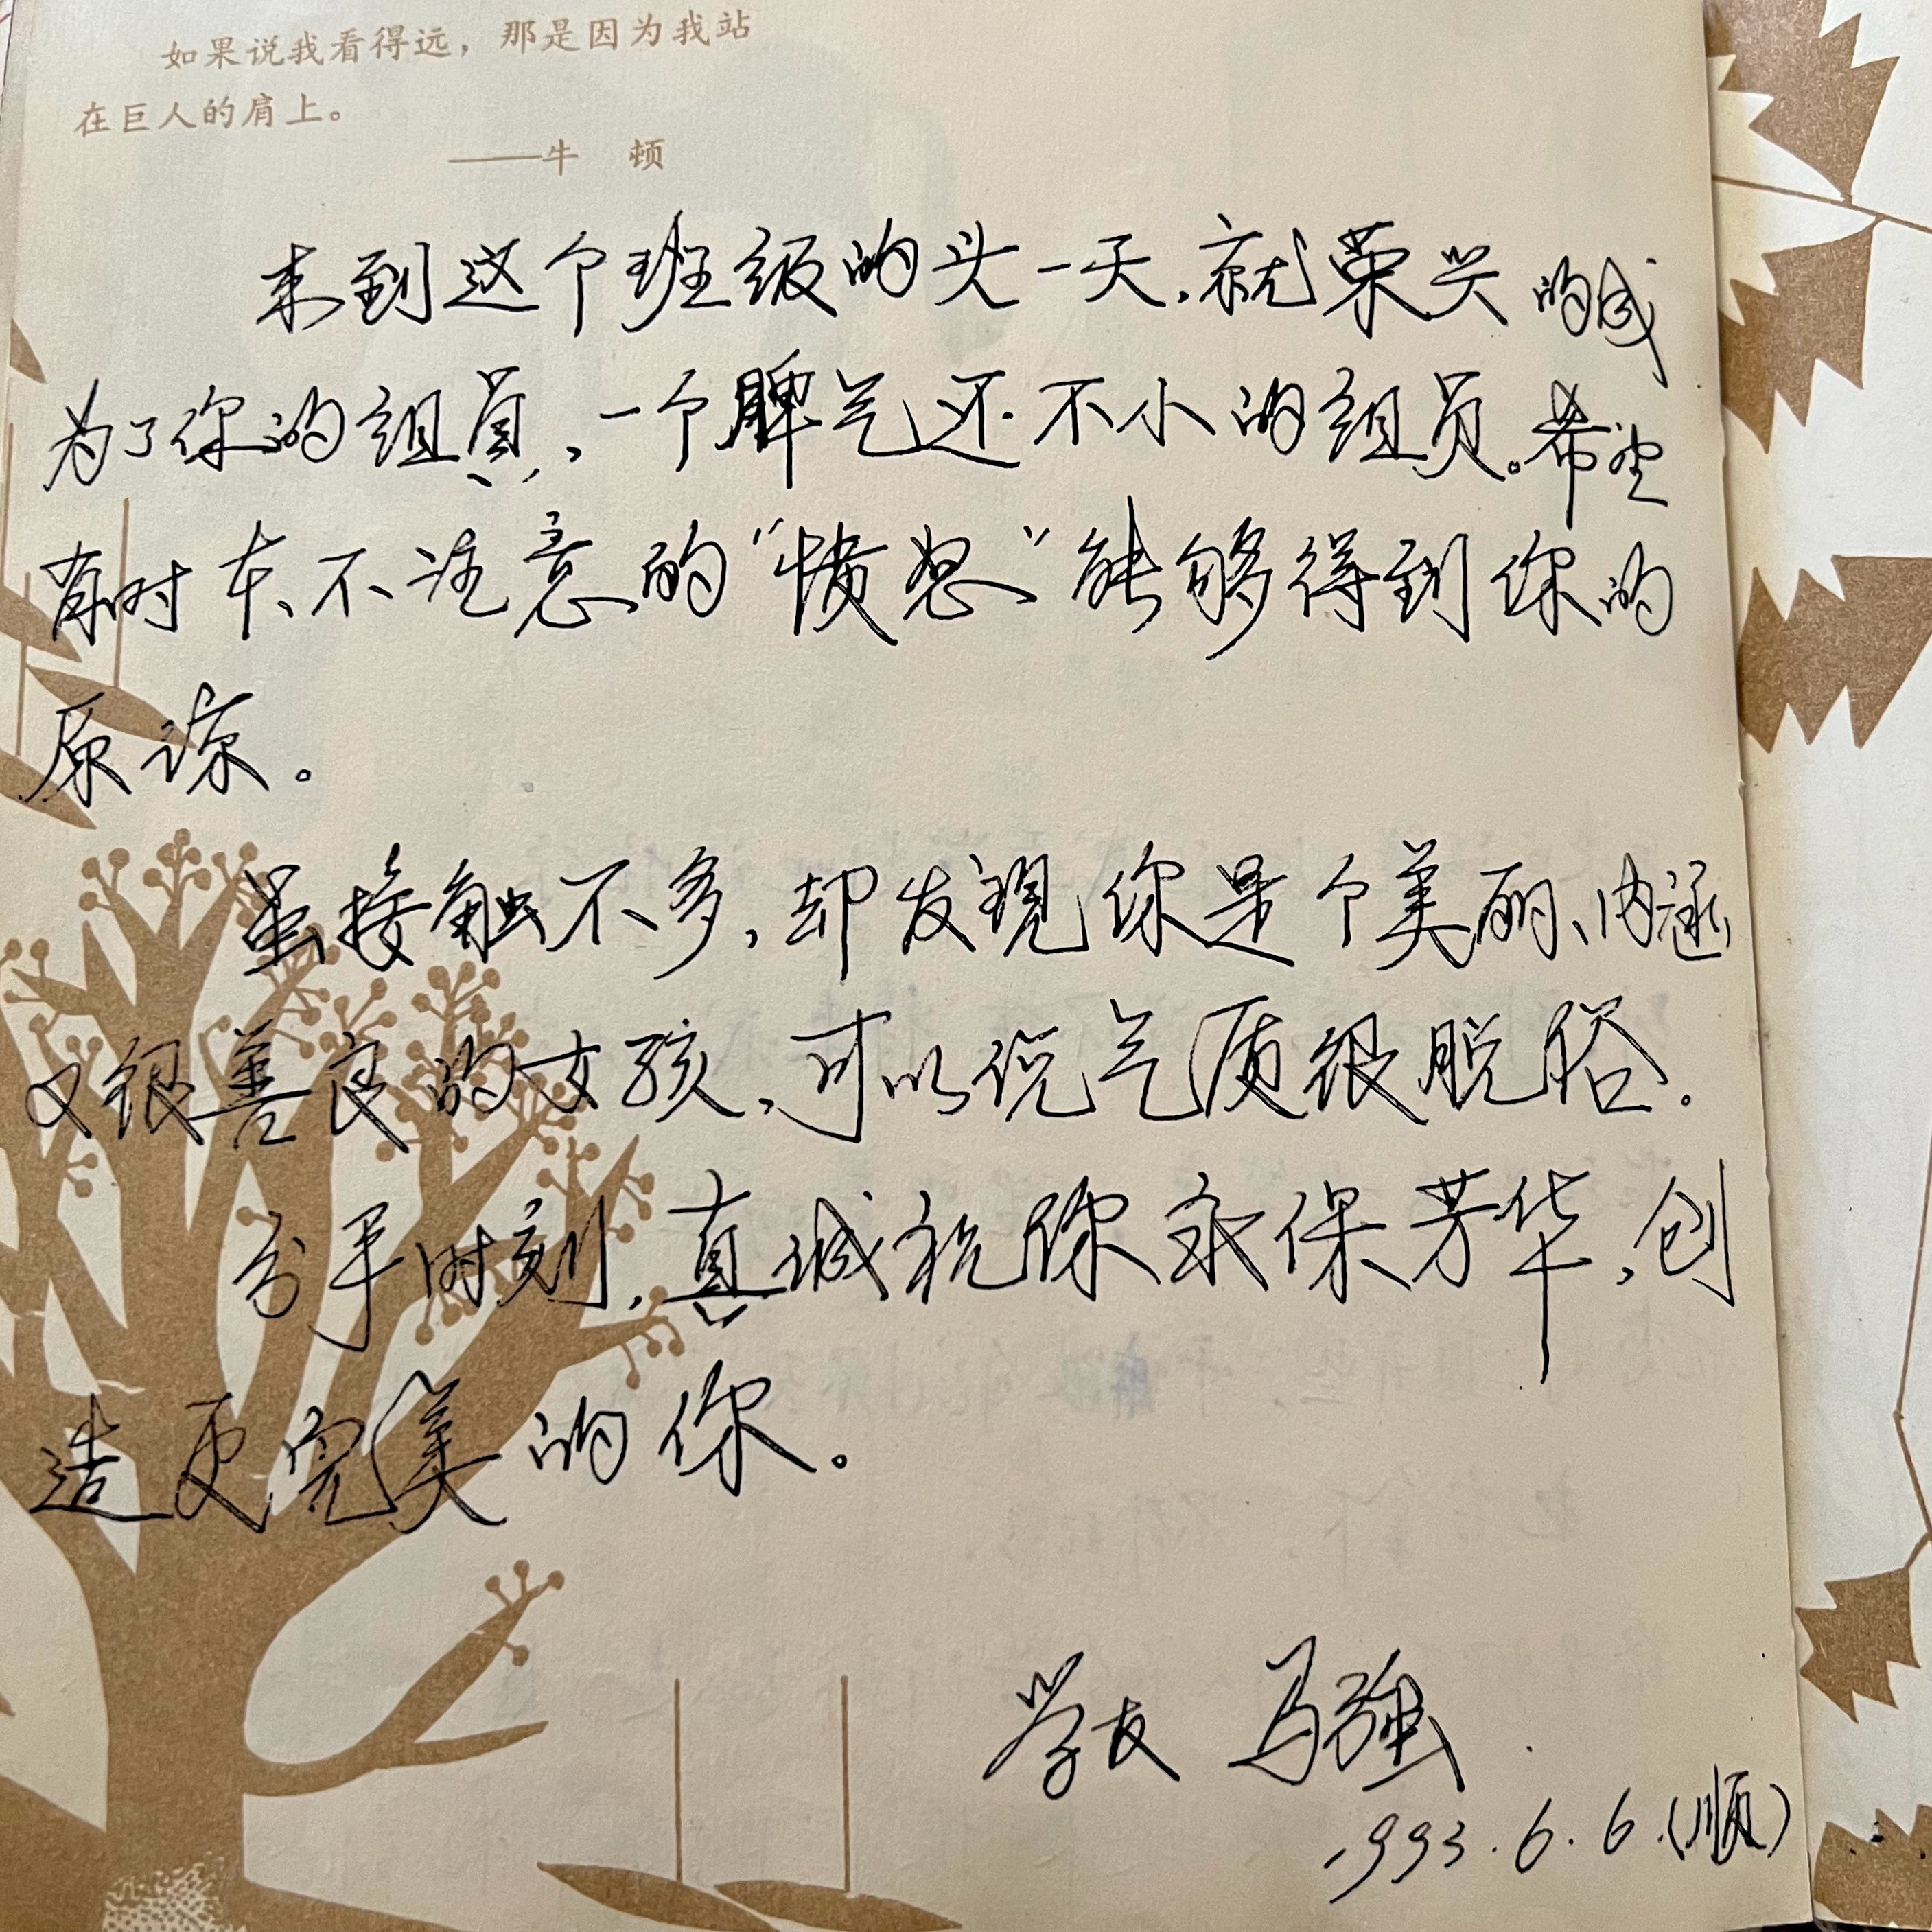 如果说我看得远，那是因为我站
在巨人的肩上。
——牛 顿
来到这个班级的头一天，就荣兴的成
为了你的组员，一个脾气还不小的组员。希望
有时在不注意的“愤怒”能够得到你的
原谅。
虽接触不多，却发现你是个美丽、内涵
又很善良的女孩，可以说气质很脱俗.
分手时刻，真诚祝你永保芳华，创
造更完美的你。
学友 马强
1993.6.6.(顺)